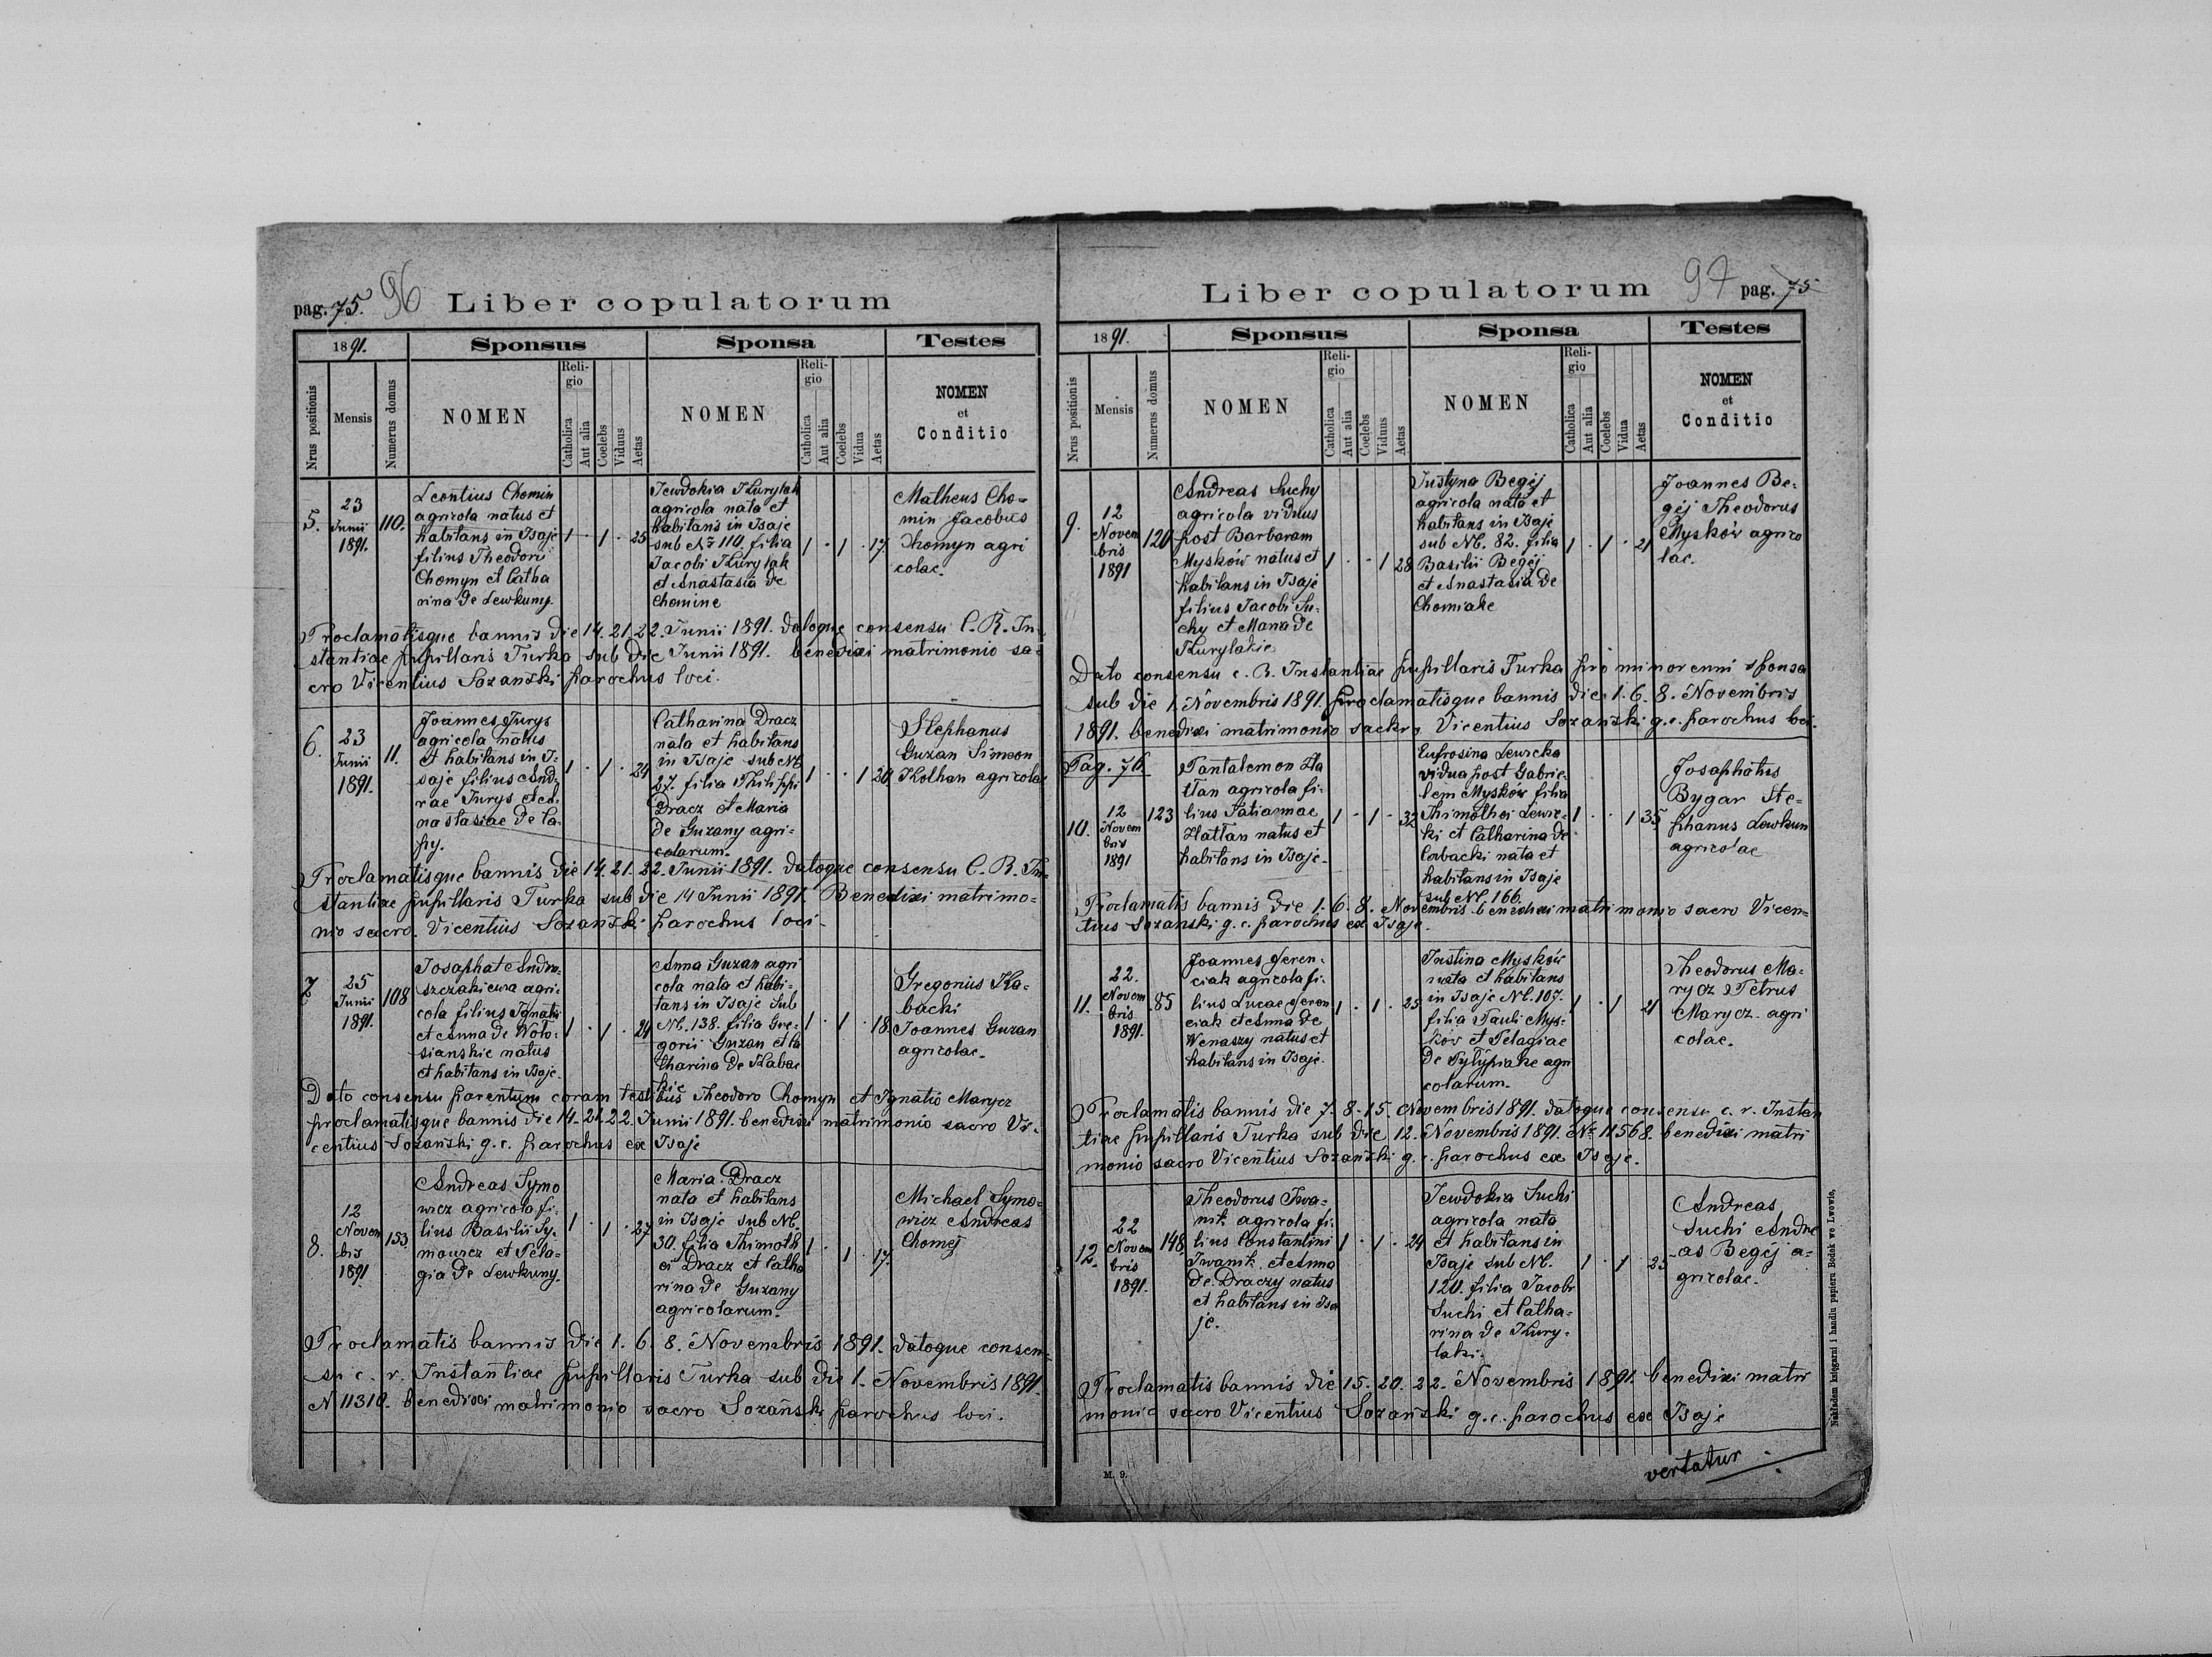 pag. 75. 96 Liber copulatorum
1891. Sponsus Sponsa Testes
Nrus positionis Mensis Numerus domus NOMEN Religio Catholica Aut alia Coelebs Viduus Aetas NOMEN Religio Catholica Aut alia Coelebs Vidua Aetas NOMEN et Conditio
5. 23 Junii 1891. 110.
Leontius Chomin
agricola natus et
habitans in Isaje
filius Theodori
Chomyn et Catha
rina de Lewkuny.
1 · 1 · 25
Jewdokia Kurylak
agricola nata et
habitans in Isaje
sub No 110. filia
Jacobi Kurylak
et Anastasia de
Chomine
1 · 1 · 17.
Matheus Cho=
min Jacobus
Chomyn agri
colae.
Proclamatisque bannis die 14. 21. 22. Junii 1891. datoque consensu C. R. In=
stantiae pupillaris Turka sub die Junii 1891. benedixi matrimonio sa=
cro Vicentius Sozański parochus loci.
6. 23 Junii 1891. 11.
Joannes Jurys
agricola natus
et habitans in I=
saje filius And=
reae Jurys et A=
nastasiae de Ca=
py.
1 · 1 · 24
Catharina Dracz
nata et habitans
in Isaje sub No
27. filia Philippi
Dracz et Maria
de Guzany agri=
colarum.
1 · · 1 20
Stephanus
Guzan Simeon
Kolhan agricolae
Proclamatisque bannis die 14. 21. 22. Junii 1891. datoque consensu C. R. In=
stantiae pupillaris Turka sub die 14 Junii 1891. Benedixi matrimo=
nio sacro. Vicentius Sozański parochus loci.
7 25 Junii 1891. 108
Josaphat Andru=
szczakiewa agri=
cola filius Ignatii
et Anna de Woło=
sianskie natus
et habitans in Isaje.
1 · 1 · 24
Anna Guzan agri
cola nata et habi=
tans in Isaje sub
No. 138. filia Gre=
gorii Guzan et Ca
tharina de Kabac
kie
1 · 1 · 18.
Gregorius Ka=
backi
Joannes Guzan
agricolae.
Dato consensu parentum coram testibus Theodoro Chomyn et Ignatio Marycz
proclamatisque bannis die 14. 21. 22. Junii 1891. benedixi matrimonio sacro Vi=
centius Sozański g. c. parochus ex Isaje
8. 12 Novembris 1891 153
Andreas Symo
wicz agricola fi=
lius Basilii Sy=
mowicz et Pela=
gia de Lewkuny.
1 · 1 · 27
Maria Dracz
nata et habitans
in Isaje sub No.
30. filia Thimoth
ei Dracz et Catha
rina de Guzany
agricolarum.
1 · 1 · 17.
Michael Symo=
wicz Andreas
Chomej
Proclamatis bannis die 1. 6. 8. Novembris 1891. datoque consen=
su c. r. Instantiae pupillaris Turka sub die 1. Novembris 1891.
N 11310. benedixi matrimonio sacro Sozański parochus loci.
Liber copulatorum 97 pag. 75
1891. Sponsus Sponsa Testes
Nrus positionis Mensis Numerus domus NOMEN Religio Catholica Aut alia Coelebs Viduus Aetas NOMEN Religio Catholica Aut alia Coelebs Vidua Aetas NOMEN et Conditio
9. 12 Novembris 1891 120
Andreas Suchy
agricola viduus
post Barbaram
Mysków natus et
habitans in Isaje
filius Jacobi Su=
chy et Maria de
Kurylakie
1 · · 1 28
Justyna Begéj
agricola nata et
habitans in Isaje
sub No. 82. filia
Basilii Begéj
et Anastasia de
Chomiake
1 · 1 · 21
Joannes Be=
géj Theodorus
Mysków agrico
lae.
Dato consensu c. R. Instantiae pupillaris Turka pro minorenni sponsa
sub die 1. Novembris 1891. proclamatisque bannis die 1. 6. 8. Novembris
1891. benedixi matrimonio sackro. Vicentius Sozański g. c. parochus loci.
Pag. 76.
10. 12 Novembris 1891 123
Pantalemon Ha
tłan agricola fi=
lius Tatiannae
Hatłan natus et
habitans in Isaje.
1 · 1 · 32
Eufrosina Lewicka
vidua post Gabrie=
lem Mysków filia
Thimothei Lewic=
ki et Catharina de
Corbacki nata et
habitans in Isaje
sub No. 166.
1 · · 1 35
Josaphatus
Bygar Ste=
phanus Lewkun
agricolae
Proclamatis bannis die 1. 6. 8. Novembris benedixi matrimonio sacro Vicen=
tius Sozanski g. c. parochus ex Isaje.
11. 22. Novembris 1891. 85
Joannes Feren=
ciak agricola fi=
lius Lucae Feren
ciak et Anna de
Wenaszy natus et
habitans in Isaje.
1 · 1 · 25
Justina Mysków
nata et habitans
in Isaje No. 107.
filia Pauli Mys=
ków et Pelagiae
de Pylypiake agri
colarum.
1 · 1 21
Theodorus Ma=
rycz Petrus
Marycz agri
colae.
Proclamatis bannis die 7. 8. 15. Novembris 1891. datoque consensu c. r. Instan
tiae pupillaris Turka sub die 12. Novembris 1891. No 11568. benedixi matri
monio sacro Vicentius Sozański g. c. parochus ex Isaje.
12. 22 Novembris 1891. 148.
Theodorus Iwa=
nik agricola fi=
lius Constantini
Iwanik et Anna
de Draczy natus
et habitans in Isa
je.
1 · 1 · 24
Jewdokia Suchi
agricola nata
et habitans in
Isaje sub No.
120. filia Jacobi
Suchi et Catha=
rina de Kury=
laki.
1 · 1 25
Andreas
Suchi Andre
as Begéj a=
gricolae.
Proclamatis bannis die 15. 20. 22. Novembris 1891. benedixi matri
monio sacro Vicentius Sozański g. c. parochus ex Isaje
vertatur
M. 9.
Nakładem księgarni i handlu papieru Bodek we Lwowie,